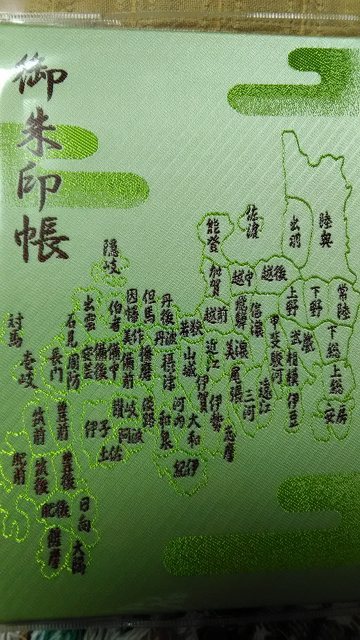 御朱印帳
陸奥
出羽
佐渡
能登
加賀
越中
越後
上野
下野
常陸
下総
上総
安房
武蔵
相模
伊豆
甲斐
駿河
信濃
飛騨
美濃
尾張
三河
遠江
越前
若狭
近江
山城
伊賀
伊勢
志摩
大和
河内
和泉
紀伊
摂津
丹後
丹波
但馬
播磨
淡路
因幡
美作
備前
伯耆
備中
備後
隠岐
出雲
石見
安芸
周防
長門
讃岐
阿波
伊予
土佐
対馬
壱岐
筑前
豊前
肥前
筑後
豊後
肥後
日向
薩摩
大隅